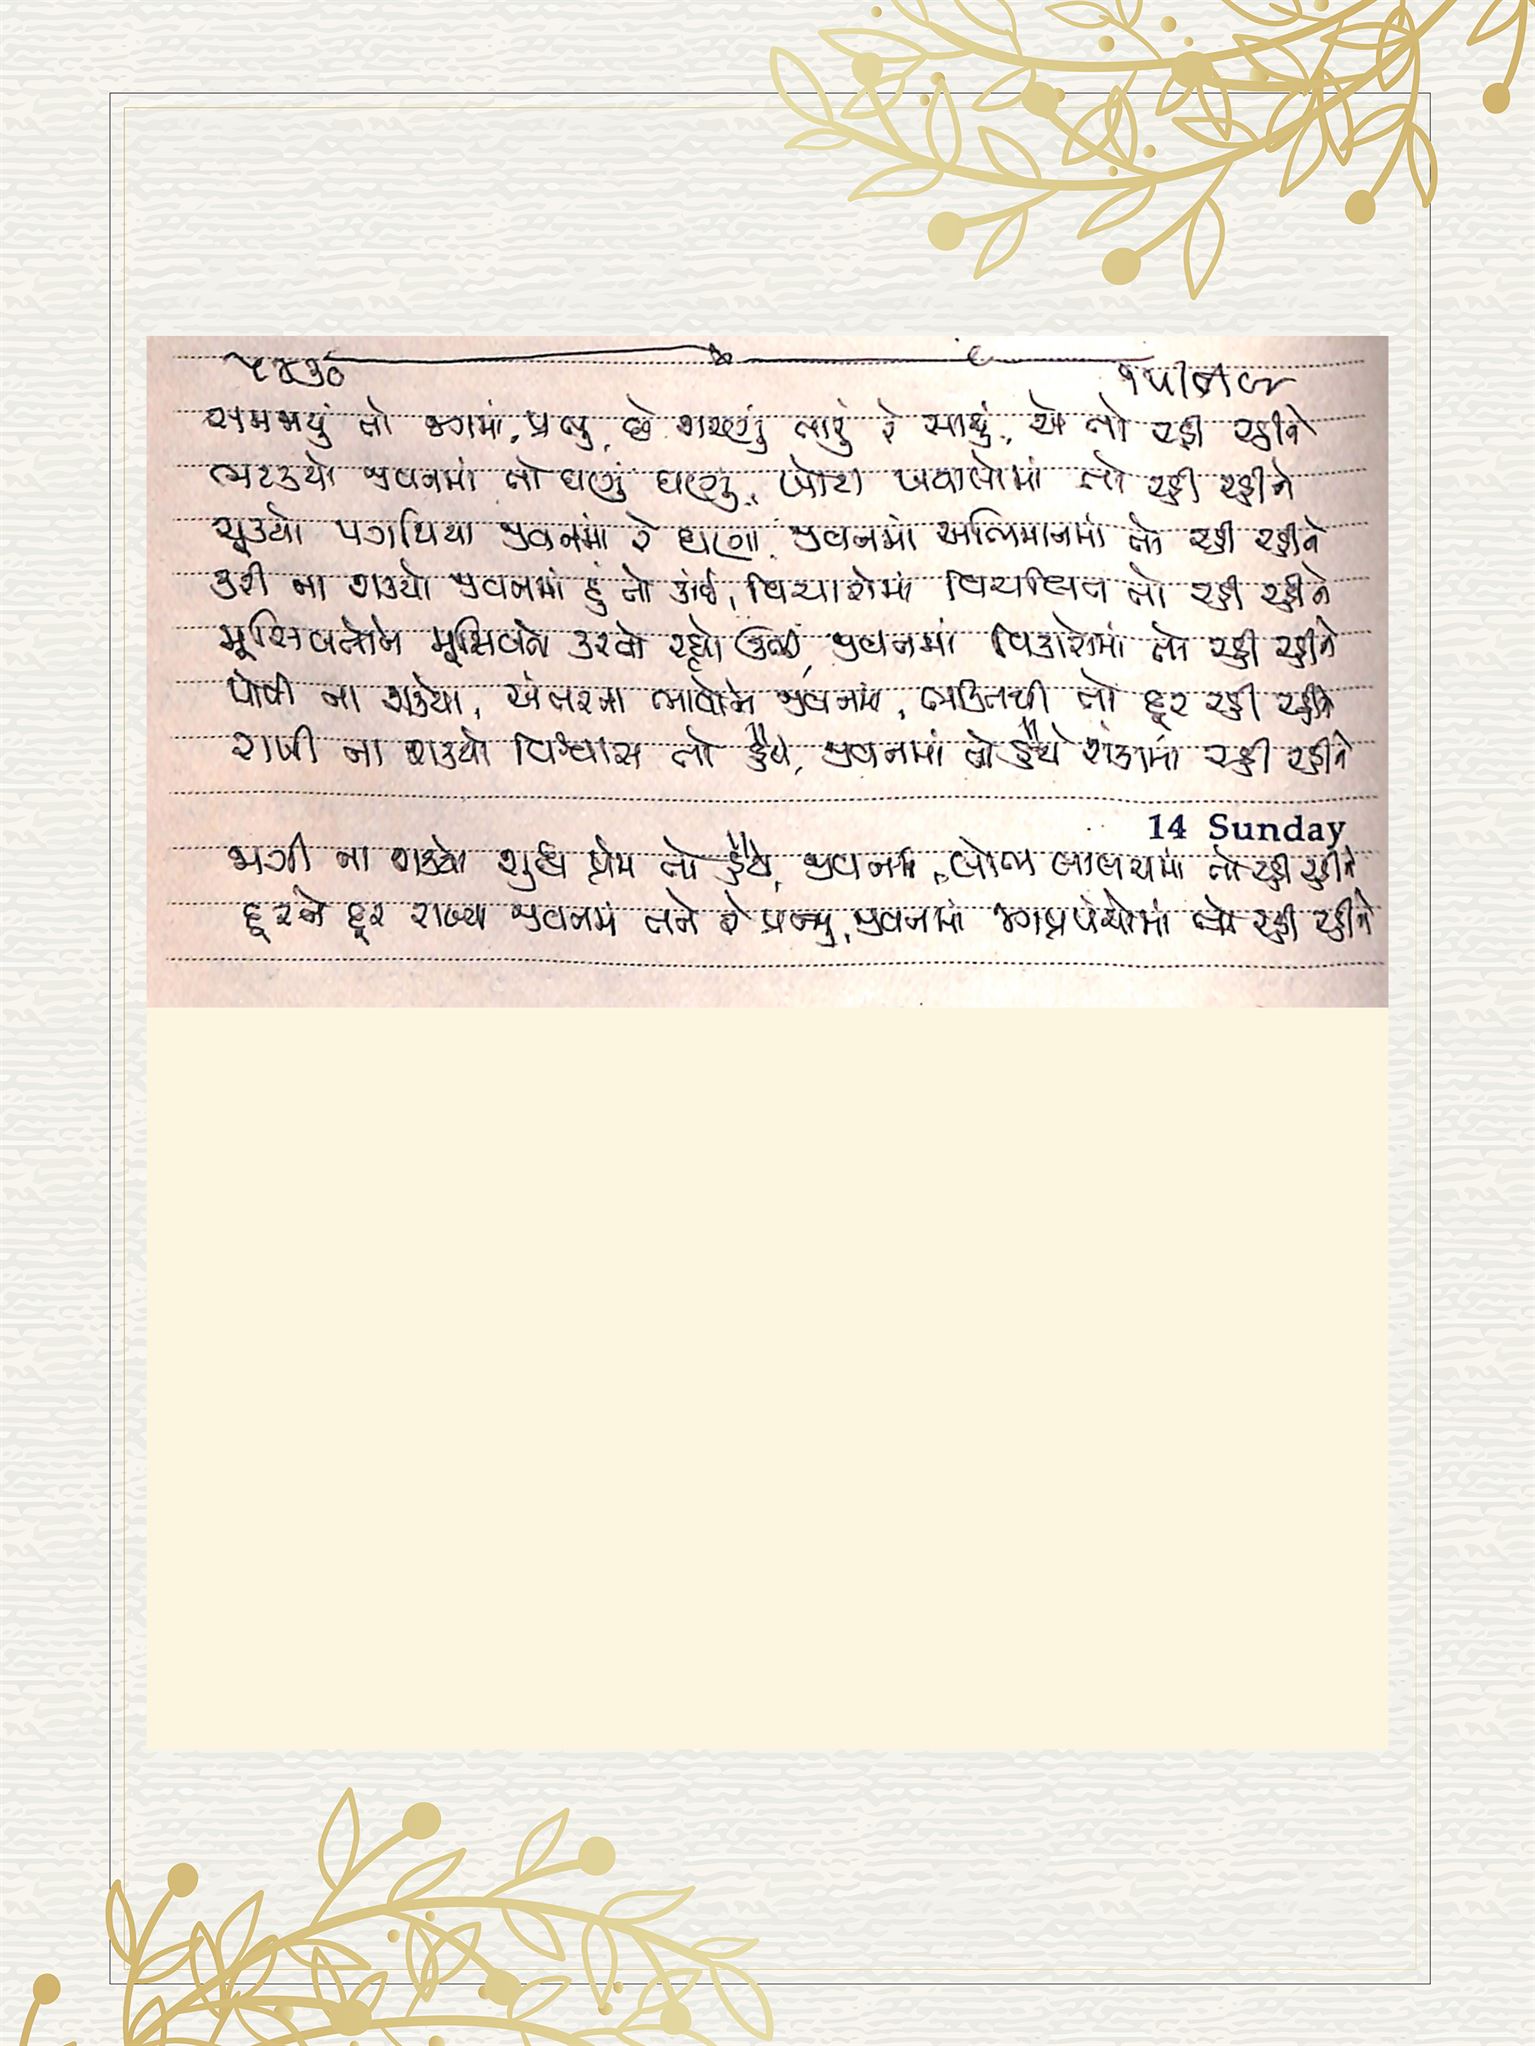 ૫૪૩૦
સમજાયું તો જગમાં, પ્રભુ, છે શરણું તારું રે સાચું, એ તો રહી રહીને
ભટક્યો જીવનમાં તો ઘણું ઘણું, ખોટા ખ્યાલોમાં તો રહી રહીને
ચૂક્યો પગથિયા જીવનમાં રે ઘણા, જીવનમાં અભિમાનમાં તો રહી રહીને
કરી ના શક્યો જીવનમાં હું તો કાંઈ, વિચારોમાં વિચલિત તો રહી રહીને
મુસિબતોને મુસિબતો કરતો રહ્યો ઊભી, જીવનમાં વિકારોમાં તો રહી રહીને
પોષી ના શક્યો, અંતરના ભાવોને જીવનમાં, ભક્તિથી તો દૂર રહી રહીને
રાખી ના શક્યો વિશ્વાસ તો હૈયે, જીવનમાં તો હૈયે શંકામાં રહી રહીને
14 Sunday
જગાવી ના શક્યો શુદ્ધ પ્રેમ તો હૈયે, જીવનમાં, લોભ લાલચમાં તો રહી રહીને
દૂરને દૂર રાખ્યા જીવનમાં તને રે પ્રભુ, જીવનમાં જગપ્રપંચોમાં તો રહી રહીને